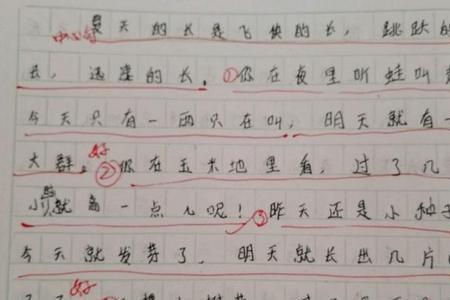 中心句 夏天的长是飞快的长，跳跃的
长，迅速的长。①你在夜里听蛙叫
今天只有一两只在叫，明天就有一
大群。好②你在玉米地里看，过了几
就高一点儿呢！③昨天还是小种子
今天就发芽了，明天就长出几片
好